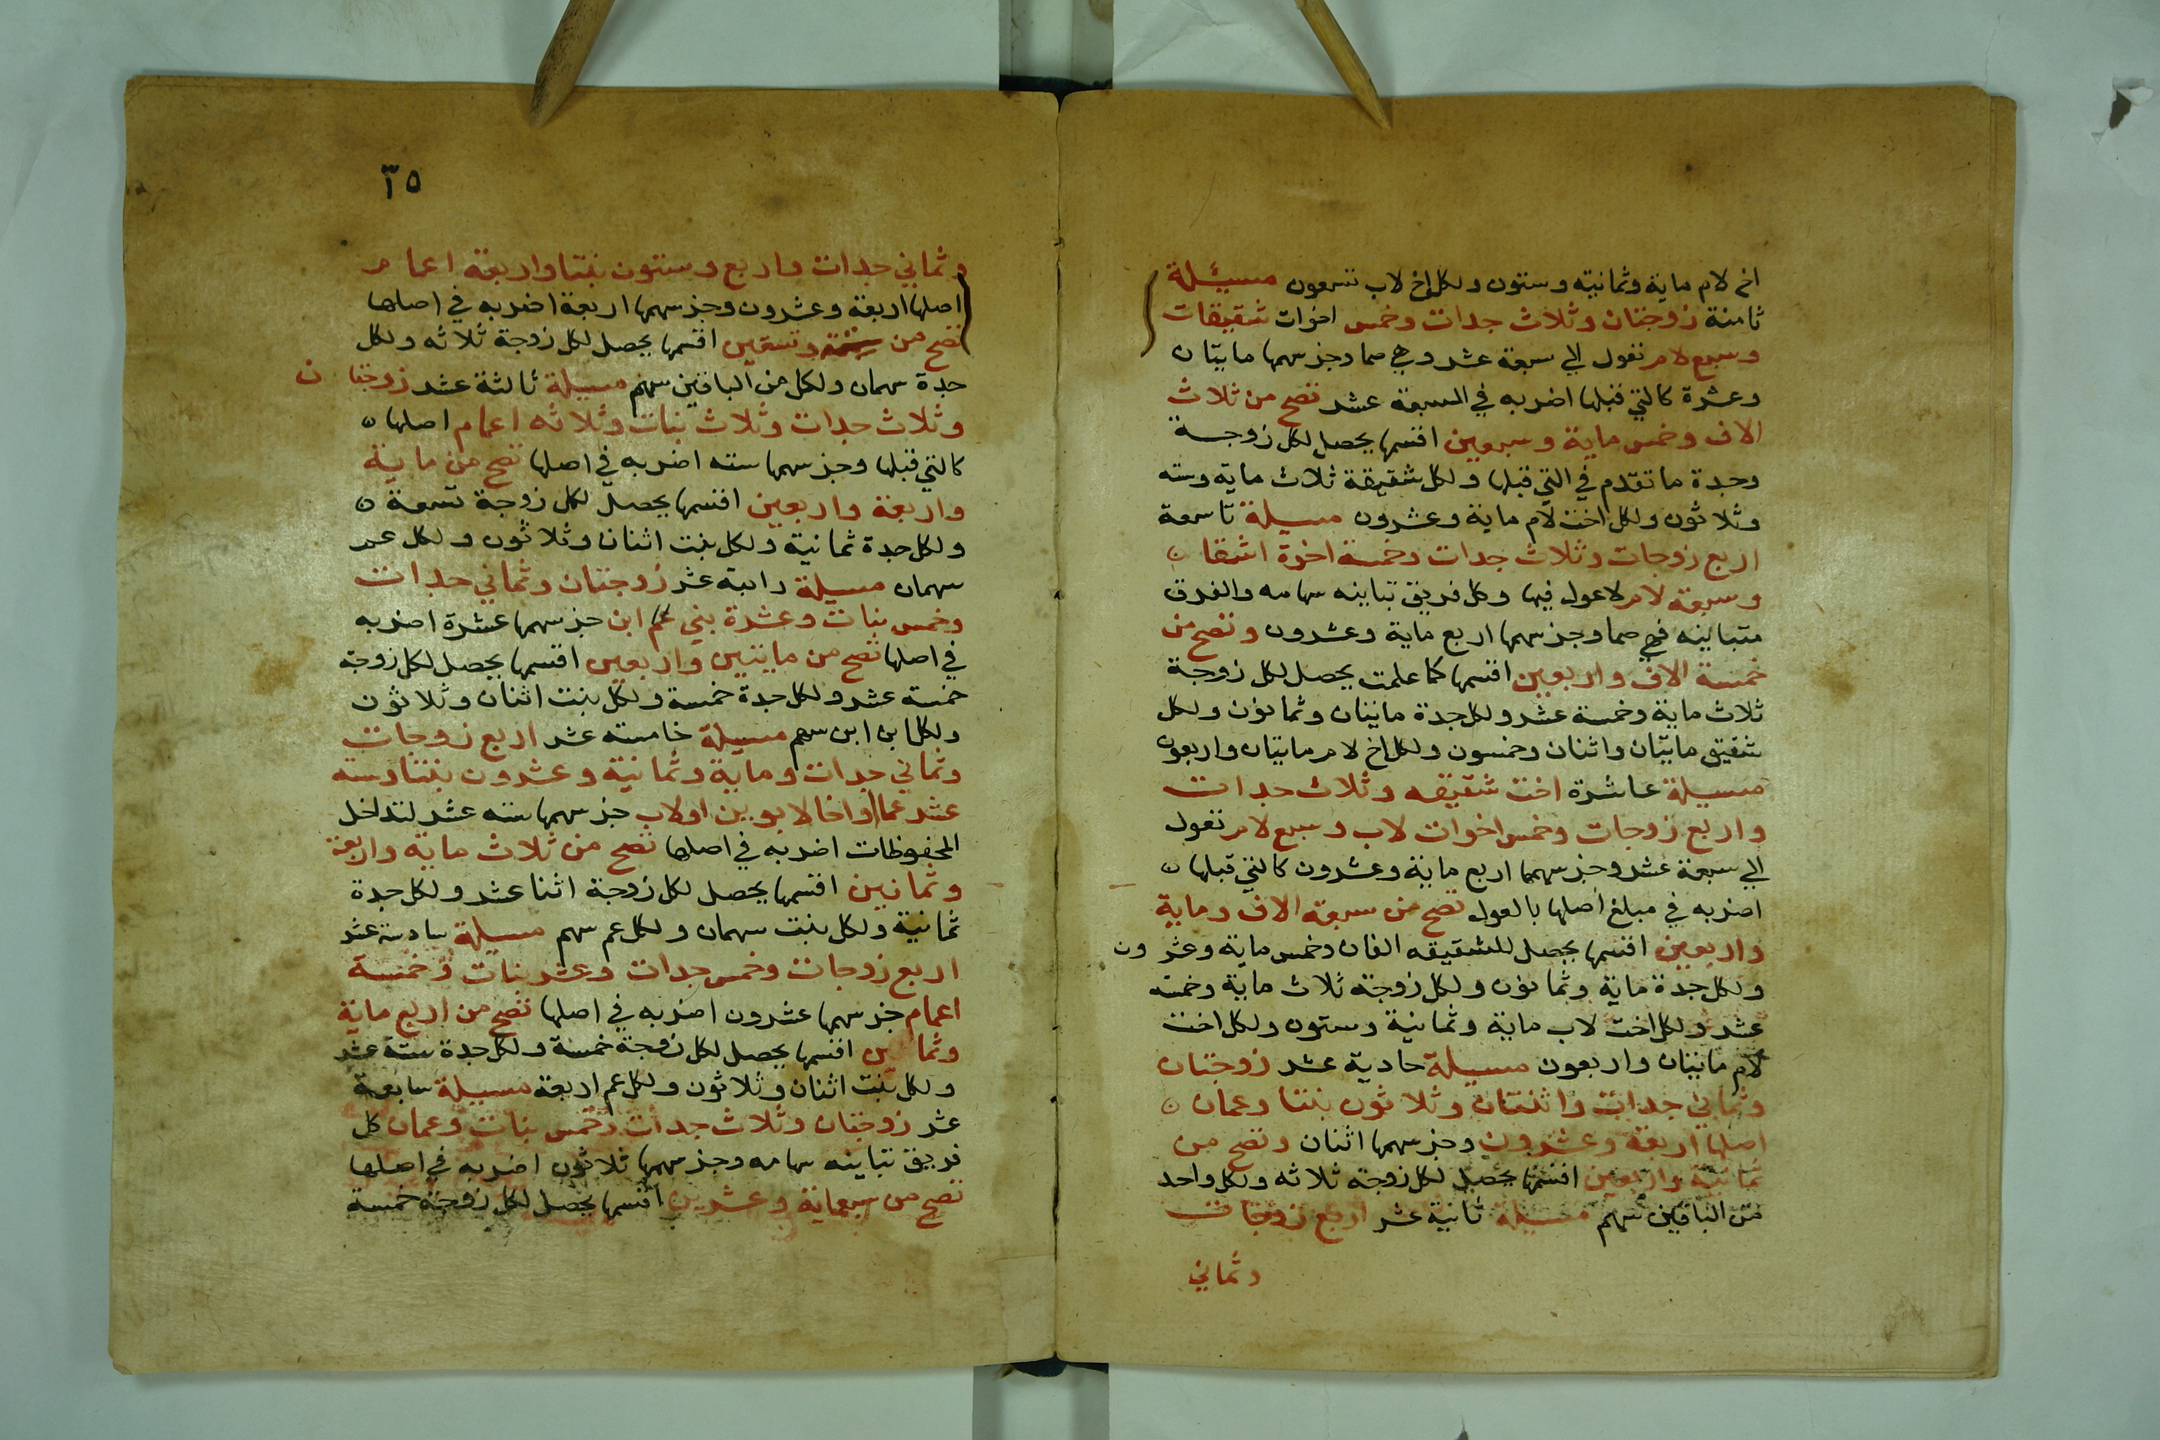 اخ لام ماية وثمانية وستون ولكل اخ لاب تسعون مسيلة
ثامنة زوجتان وثلاث جدات وخمس اخوات شقيقات
وسبع لام تعول الي سبعة عشر وهي صما وجز سهمها مايتان
وعشرة كالتي قبلها اضربه في السبعة عشر تصح من ثلاث
الاف وخمس ماية وسبعين اقسمها يحصل لكل زوجة
وجدة ما تقدم في التي قبلها ولكل شقيقة ثلاث ماية وسته
وثلاثون ولكل اخت لام ماية وعشرون مسيلة تاسعة
اربع زوجات وثلاث جدات وخمسة اخوة اشقا
وسبعة لام لا عول فيها وكل فريق تباينه سهامه والفرق
متباينه فهي صما وجز سهمها اربع ماية وعشرون وتصح من
خمسة الاف واربعين اقسمها كما علمت يحصل لكل زوجة
ثلاث ماية وخمسة عشر ولكل جدة مايتان وثمانون ولكل
شقيق مايتان واثنان وخمسون ولكل اخ لام مايتان واربعون
مسيلة عاشرة اخت شقيقه وثلاث جدات
واربع زوجات وخمس اخوات لاب وسبع لام تعول
الي سبعة عشر وجز سهمها اربع ماية وعشرون كالتي قبلها
اضربه في مبلغ اصلها بالعول تصح من سبعة الاف وماية
واربعين اقسمها يحصل للشقيقه الفان وخمس ماية وعشرون
ولكل جدة ماية وثمانون ولكل زوجة ثلاث ماية وخمسة
عشر ولكل اخت لاب ماية وثمانية وستون ولكل اخت
لام مايتان واربعون مسيلة حادية عشر زوجتان
وثماني جدات واثنتان وثلاثون بنتا وعمان
اصلها اربعة وعشرون وجز سهمها اثنان وتصح من
ثمانية واربعين اقسمها يحصل لكل زوجة ثلاثه ولكل واحد
من الباقين سهم مسيلة ثانية عشر اربع زوجات
وثماني
٣٥
وثماني جدات واربع وستون بنتا واربعة اعمام
اصلها اربعة وعشرون وجز سهمها اربعة اضربه في اصلها
تصح من ستة وتسعين اقسمها يحصل لكل زوجة ثلاثه ولكل
جدة سهمان ولكل من الباقين سهم مسيلة ثالثة عشر زوجتان
وثلاث جدات وثلاث بنات وثلاثه اعمام اصلها
كالتي قبلها وجز سهمها سته اضربه في اصلها تصح من ماية
واربعة واربعين اقسمها يحصل لكل زوجة تسعة
ولكل جدة ثمانية ولكل بنت اثنان وثلاثون ولكل عم
سهمان مسيلة رابعة عشر زوجتان وثماني جدات
وخمس بنات وعشرة بني عم ابن جز سهمها عشرة اضربه
في اصلها تصح من مايتين واربعين اقسمها يحصل لكل زوجة
خمسة عشر ولكل جدة خمسة ولكل بنت اثنان وثلاثون
ولكل ابن ابن سهم مسيلة خامسة عشر اربع زوجات
وثماني جدات وماية وثمانية وعشرون بنتا وسته
عشر عما او اخا لابوين او لاب جز سهمها سته عشر لتداخل
المحفوظات اضربه في اصلها تصح من ثلاث ماية واربعة
وثمانين اقسمها يحصل لكل زوجة اثنا عشر ولكل جدة
ثمانية ولكل بنت سهمان ولكل عم سهم مسيلة سادسة عشر
اربع زوجات وخمس جدات وعشر بنات وخمسة
اعمام جز سهمها عشرون اضربه في اصلها تصح من اربع ماية
وثمانين اقسمها يحصل لكل زوجة خمسة ولكل جدة ستة عشر
ولكل بنت اثنان وثلاثون ولكل عم اربعة مسيلة سابعة
عشر زوجتان وثلاث جدات وخمس بنات وعمان كل
فريق تباينه سهامه وجز سهمها ثلاثون اضربه في اصلها
تصح من سبعماية وعشرين اقسمها يحصل لكل زوجة خمسة